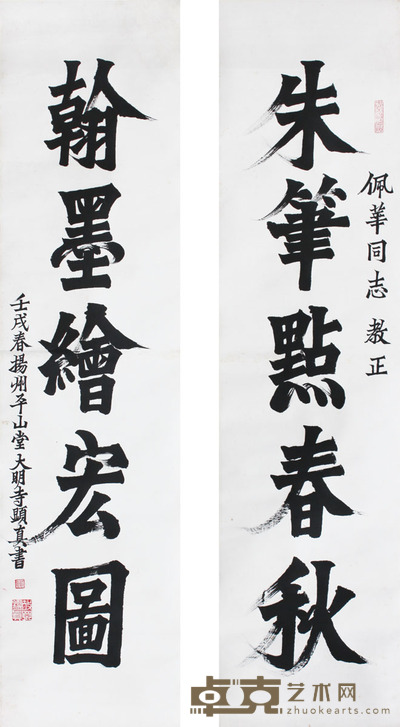 佩華同志 教正
朱筆點春秋
翰墨繪宏圖
壬戌春揚州平山堂大明寺顕真書
卓克艺术网
zhuokearts.com